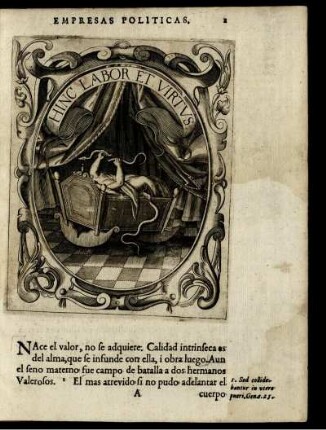 EMPRESAS POLITICAS. 1
HINC LABOR ET VIRTVS
NAce el valor, no se adquiere. Calidad intrinseca es
del alma, que se infunde con ella, i obra luego. Aun
el seno materno fue campo de batalla a dos hermanos
Valerosos. 1 El mas atrevido si no pudo adelantar el
1. Sed collide-
bantur in utero
pueri. Gen. 25.
A cuerpo